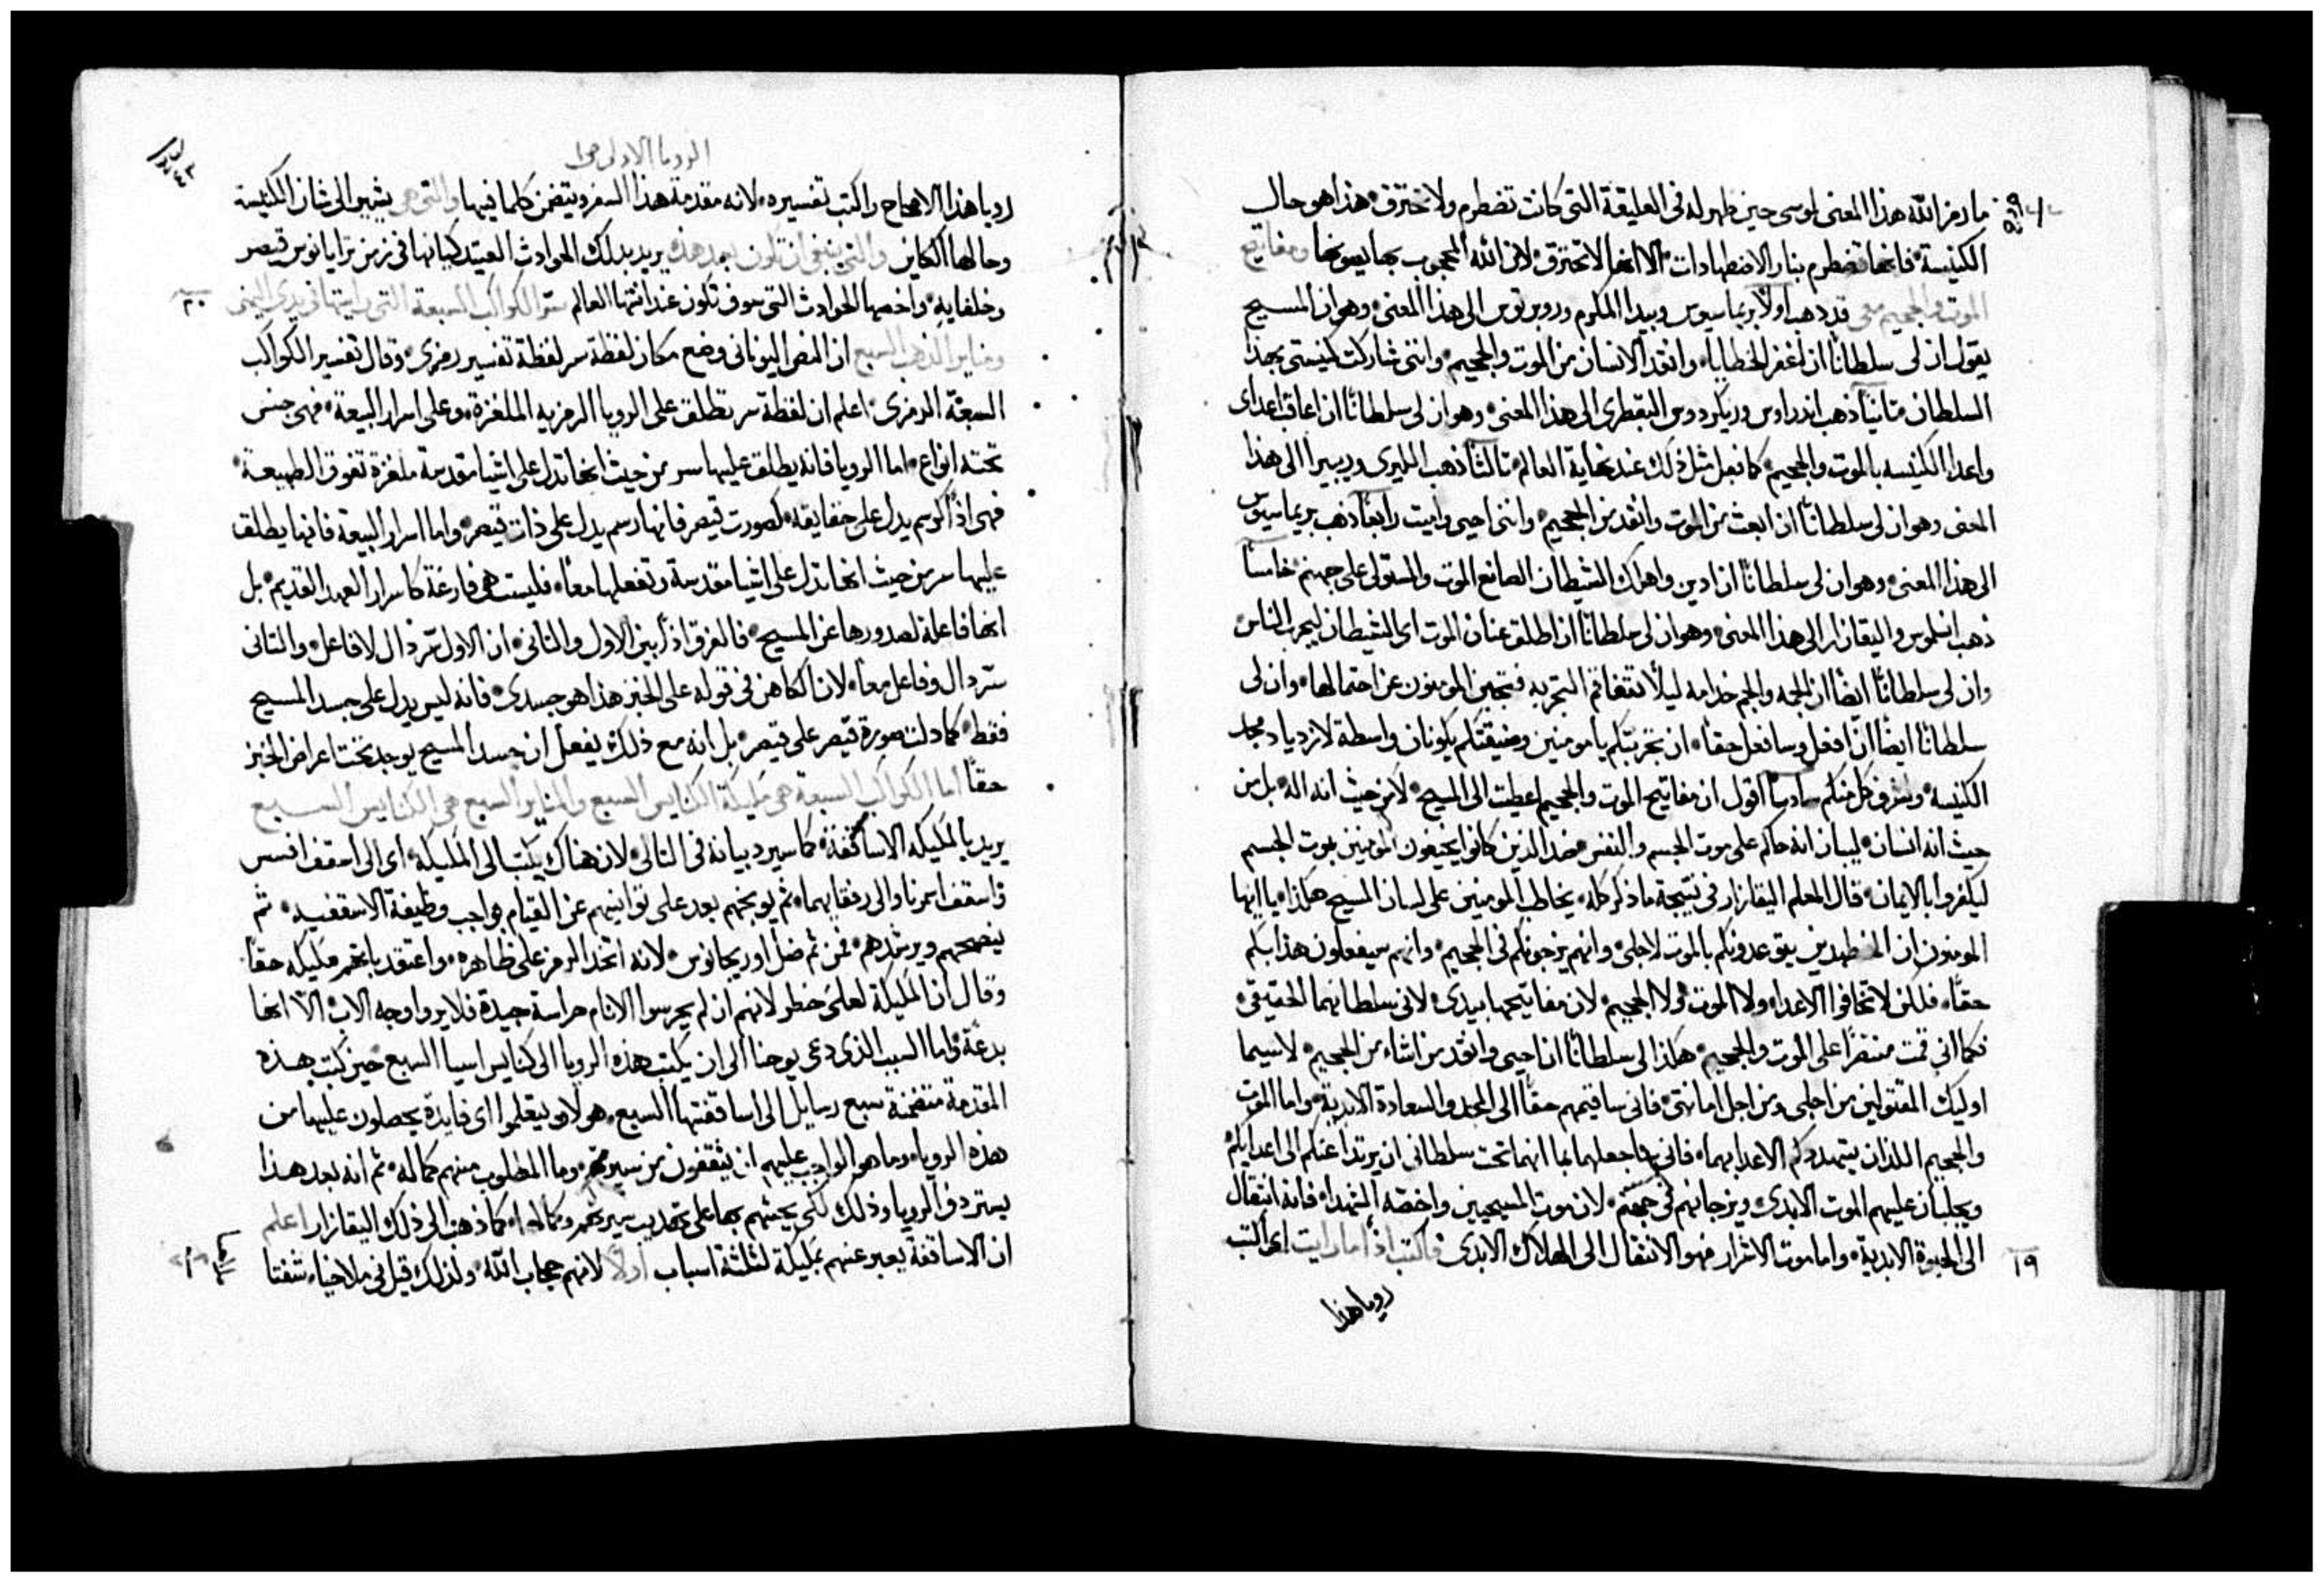 ما رمز الله هذا المعنى لموسى حين ظهر له في العليقة التي كانت تضطرم ولا تحترق هذا هو حال
الكنيسة فانها تضطرم بنار الاضطهادات الا انها لا تحترق لان الله المحجوب بها يصونها ومفاتيح
الموت والجحيم معي قد ذهب اولاً بريماسيوس وبيدا المكرم وروبرتوس الى هذا المعنى وهو ان المسيح
يقول ان لى سلطاناً ان اغفر الخطايا وانقد الانسان من الموت والجحيم واننى شاركت كنيستى بهذا
السلطان ثانياً ذهب اندراوس وريكردوس البقطرى الى هذا المعنى وهو ان لى سلطاناً ان اعاقب اعداى
واعدا الكنيسه بالموت والجحيم كما نعل مثل ذلك عند نهاية العالم ثالثاً ذهب الليرى وريبيرا الى هذا
المعنى وهو ان لى سلطاناً ان ابعث من الموت وانقد من الجحيم واننى احيى واميت رابعاً ذهب بريماسيوس
الى هذا المعنى وهو ان لى سلطاناً ان ادين واهلك الشيطان الصانع الموت والمستولى على جهنم خامساً
ذهب انسلموس واليقازار الى هذا المعنى وهو ان لى سلطاناً ان اطلق عنان الموت اى الشيطان ليجرب الناس
وان لى سلطاناً ايضاً ان الجمه والجم خدامه ليلا تتفاقم التجربه فيعجز المومنون عن احتمالها وان لى
سلطاناً ايضاً ان افعل وسافعل حقاً ان تجربتكم يا مومنين وضيقتكم يكونان واسطة لازدياد مجد
الكنيسه وشرف كل منكم سادساً اقول ان مفاتيح الموت والجحيم اعطيت الى المسيح لا من حيث انه اله بل من
حيث انه انسان ليبان انه حاكم على موت الجسم والنفس ضد الذين كانوا يخيفون المومنين بموت الجسم
ليكفروا بالايمان قال المعلم اليقازار في نتيجة ما ذكر كله يخاطب المومنين على لسان المسيح هكذا يا ايها
المومنون ان المضطهدين يتوعدونكم بالموت لاجلى وانهم يزجونكم في الجحيم وانهم سيفعلون هذا بكم
حقاً فلكن لا تخافوا الاعداء ولا الموت ولا الجحيم لان مفاتيحها بيدى لانى سلطانهما الحقيقي
فكما انى قمت منتصراً على الموت والجحيم هكذا لى سلطاناً ان احيى وانقد من اشاء من الجحيم لاسيما
اوليك المقتولين من اجلى ومن اجل امانتى فانى ساقيمهم حقاً الى المجد والسعادة الابدية واما الموت
والجحيم اللذان يتهددكم الاعدا بهما فانى ساجعلهما بما انهما تحت سلطانى ان يرتدا عنكم الى اعدايكم
ويجلبان عليهم الموت الابدى ويزجانهم في جهنم لان موت المسيحيين واخصه الشهداء فانه انتقال
الى الحيوة الابدية واما موت الاشرار فهو الانتقال الى الهلاك الابدى فاكتب اذاً ما رايت اى اكتب
١٩
رويا هذا
الرويا الاولى
رويا هذا الاصحاح واكتب تفسيره لانه مقدمة هذا السفر ويتضمن كلما فيها والتي هي يشير الى شان الكنيسة
وحالها الكاين والتي ينبغي ان تكون بعد هذه يريد بذلك الحوادث العتيد كيانها في زمن ترايانوس قيصر
وخلفايه واخصها الحوادث التي سوف تكون عند انتها العالم سر الكواكب السبعة التي رايتها في يدي اليمنى
٢٠
ومناير الذهب السبع ان النص اليونانى وضع مكان لفظة سر لفظة تفسير رمزى وقال تفسير الكواكب
السبعة الرمزى اعلم ان لفظة سر تطلق على الرويا الرمزيه الملغزة وعلى اسرار البيعة فهى جنس
تحته انواع اما الرويا فانه يطلق عليها سر من حيث انها تدل على اشيا مقدسة ملغزة تفوق الطبيعة
فهى اذاً كرسم يدل على حقايقه كصورت قيصر فانها رسم يدل على ذات قيصر واما اسرار البيعة فانها يطلق
عليها سر من حيث انها تدل على اشيا مقدسة وتفعلها معاً فليست هى فارغة كاسرار العهد القديم بل
انها فاعلة لصدورها عن المسيح فالفرق اذاً بين الاول والثانى ان الاول سر دال لا فاعل والثانى
سر دال وفاعل معاً لان الكاهن في قوله على الخبز هذا هو جسدى فانه ليس يدل على جسد المسيح
فقط كما دلت صورة قيصر على قيصر بل انه مع ذلك يفعل ان جسد المسيح يوجد تحت اعراض الخبز
حقاً اما الكواكب السبعة هي مليكة الكنايس السبع والمناير السبع هي الكنايس السبع
يريد بالمليكه الاساقفة كما سيرد بيانه في التالى لان هناك يكتب الى المليكة اى الى اسقف افسس
واسقف ازمرنا والى رفقايهما ثم يوبخهم بعد على توانيهم عن القيام بواجب وظيفة الاسقفيه ثم
ينصحهم ويرشدهم فمن ثم ضل اوريجانوس لانه اتخذ الرمز على ظاهره واعتقد بانهم مليكه حقاً
وقال ان المليكة لعلى خطر لانهم ان لم يحرسوا الانام حراسة جيدة فلا يرواوجه الاب الا انها
بدعة واما السبب الذى دعى يوحنا الى ان يكتب هذه الرويا الى كنايس اسيا السبع حين كتب هذه
المقدمة متضمنة سبع رسايل الى اساقفتها السبع هو لاىو ليتعلموا اى فايدة يحصلون عليها من
هذه الرويا وما هو الواجب عليهم ان يثقفون من سيرتهم وما المطلوب منهم كماله ثم انه بعد هذا
يستردف الرويا وذلك لكى يحثهم بها على تهذيب سيرتهم وكمالها كما ذهب الى ذلك اليقازار اعلم
ان الاساقفة يعبر عنهم بمليكة لثلثة اسباب اولاً لانهم حجاب الله ولذلك قيل في ملاخيا شفتا